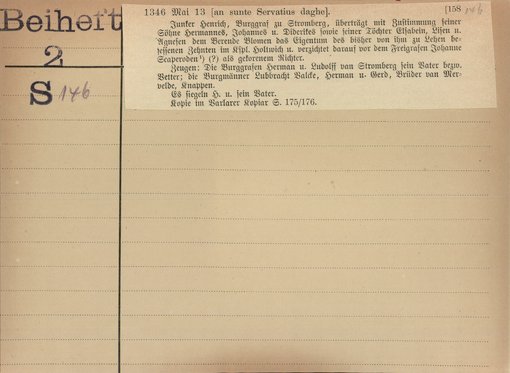 Beiheft
2
S 146
1346 Mai 13 [an sunte Servatius daghe]. [158 146
Junker Henrich, Burggraf zu Stromberg, überträgt mit Zustimmung seiner
Söhne Hermannes, Johannes u. Dideriks sowie seiner Töchter Elsabein, Lisen u.
Agnesen dem Berende Blomen das Eigentum des bisher von ihm zu Lehen be-
sessenen Zehnten im Kspl. Holtwich u. verzichtet darauf vor dem Freigrafen Johanne
Scaperoden¹) (?) als gekorenem Richter.
Zeugen: Die Burggrafen Herman u. Ludolff van Stromberg sein Vater bezw.
Vetter; die Burgmänner Lubbracht Balcke, Herman u. Gerd, Brüder van Mer-
velde, Knappen.
Es siegeln H. u. sein Vater.
Kopie im Varlarer Kopiar S. 175/176.